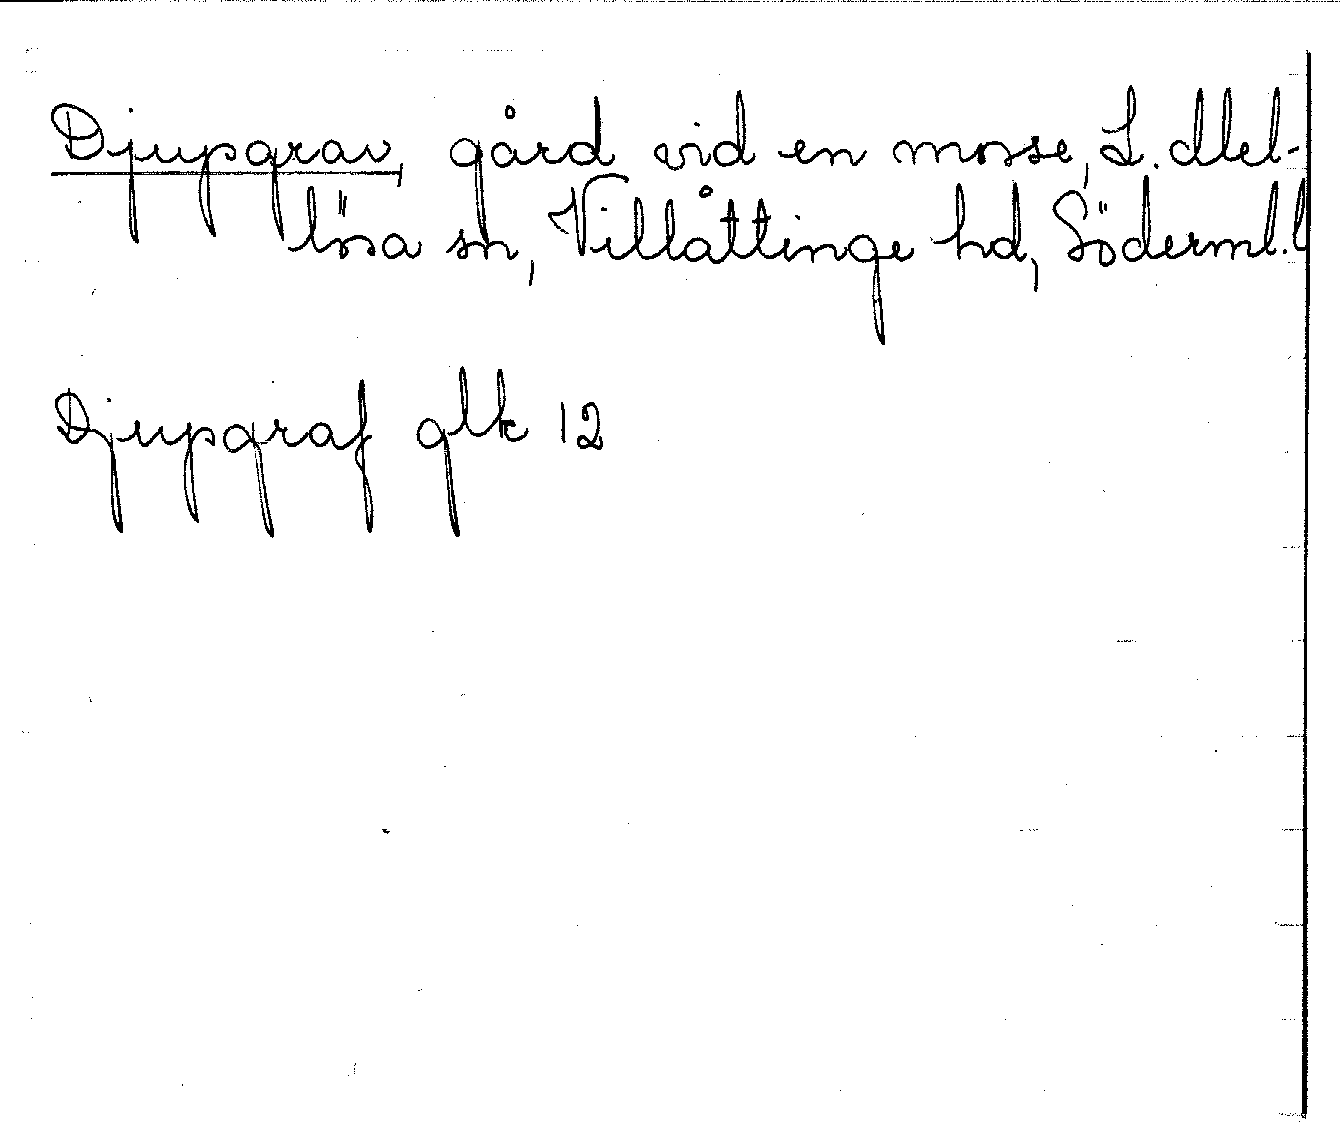 Djupgrav, gård vid en mosse, L. Mel-
lösa sn, Villåttinge hd, Söderml. l
Djupgraf glk 12